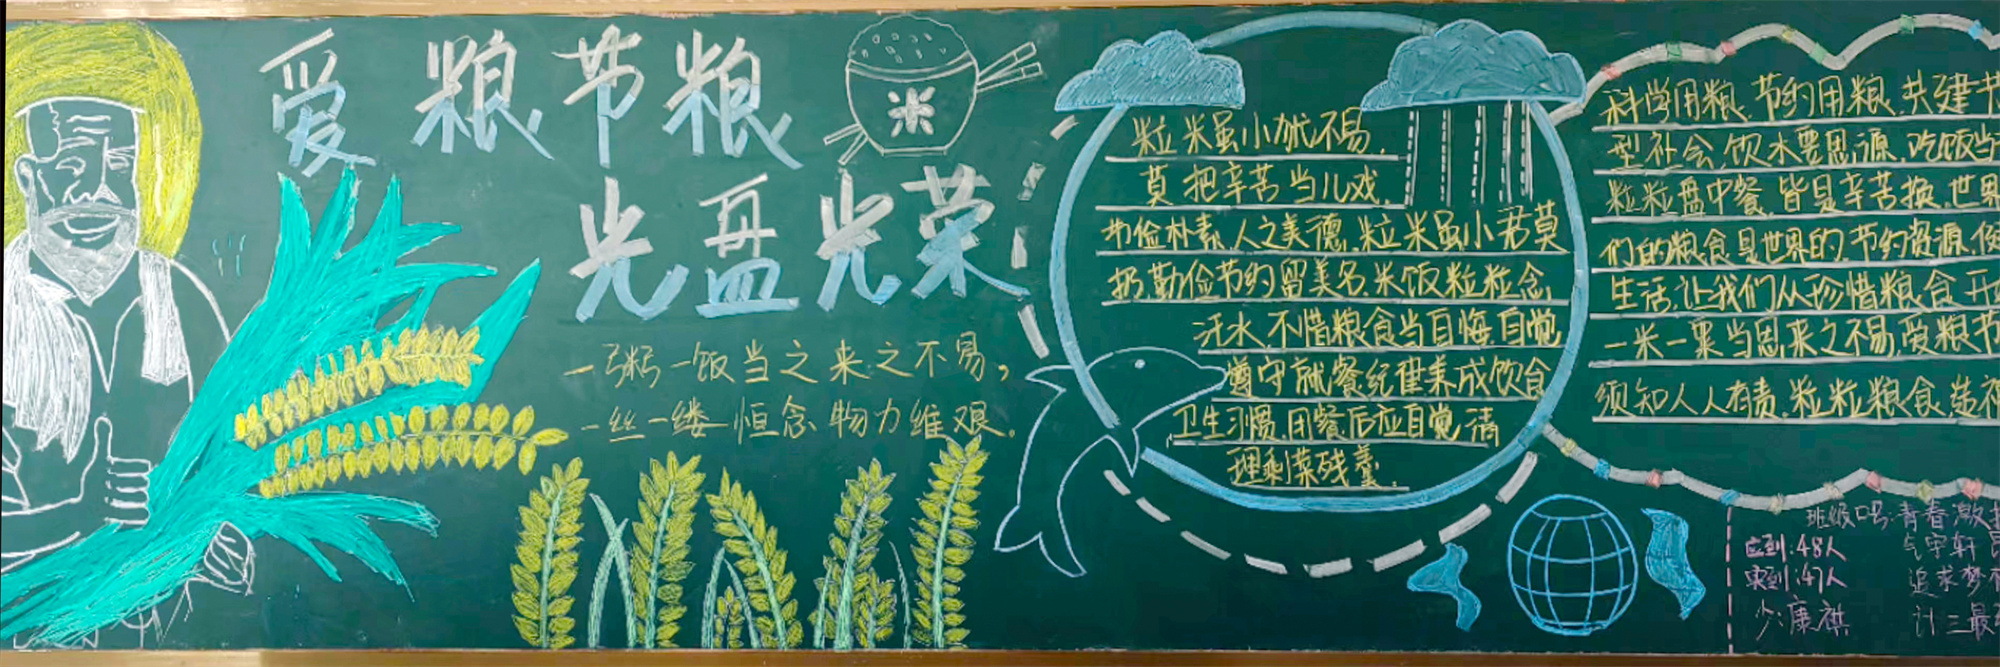 爱粮节粮
光盘光荣
米
一粥一饭当之来之不易,
一丝一缕恒念物力维艰。
粒米虽小犹不易,
莫把辛苦当儿戏,
节俭朴素,人之美德,粒米虽小君莫
扔,勤俭节约留美名,米饭粒粒念
汗水,不惜粮食当自悔,自觉
遵守就餐纪律养成饮食
卫生习惯,用餐后应自觉清
理剩菜残羹。
科学用粮,节约用粮,共建节
型社会,饮水要思源,吃饭当
粒粒盘中餐,皆是辛苦换,世界
们的粮食是世界的,节约资源,
生活,让我们从珍惜粮食开
一米一粟当思来之不易,爱粮节
须知人人有责,粒粒粮食,
班级口号:青春激
应到:48人
气宇轩
实到:47人
追求梦
少:康祺
计三最